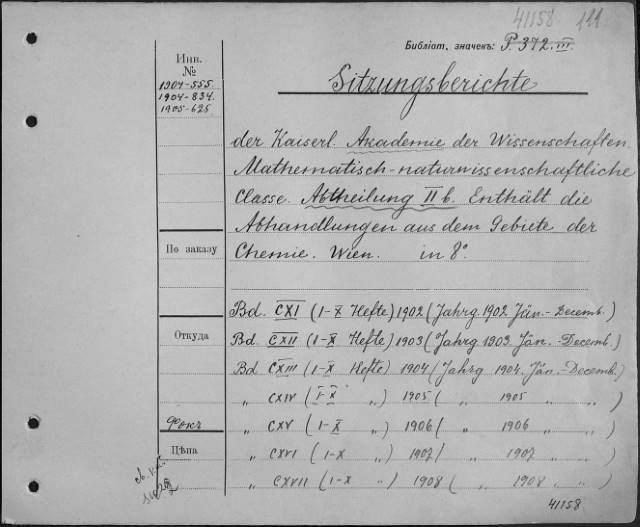 41158
Библіот. значекъ: P. 372. III.
Инв.
№
1904-555.
1904-834.
1905-625
Sitzungsberichte
der Kaiserl. Akademie der Wissenschaften.
Mathematisch-naturwissenschaftliche
Classe. Abtheilung II b. Enthält die
Abhandlungen aus dem Gebiete der
По заказу
Chemie. Wien. in 8º
Bd. CXI (I-X Hefte) 1902 (Jahrg. 1902. Jän.-Decemb.)
Откуда
Bd. CXII (I-X Hefte) 1903 (Jahrg. 1903. Jän.-Decemb.)
Bd CXIII (I-X Hefte) 1904 (Jahrg 1904. Jän.-Decemb.)
„ CXIV (I-X „) 1905 ( „ 1905 „ „ )
Фокъ
„ CXV (I-X „) 1906 ( „ 1906 „ „ )
Цѣна
„ CXVI (I-X „) 1907 ( „ 1907 „ „ )
„ CXVII (I-X „) 1908 ( „ 1908 „ „ )
41158